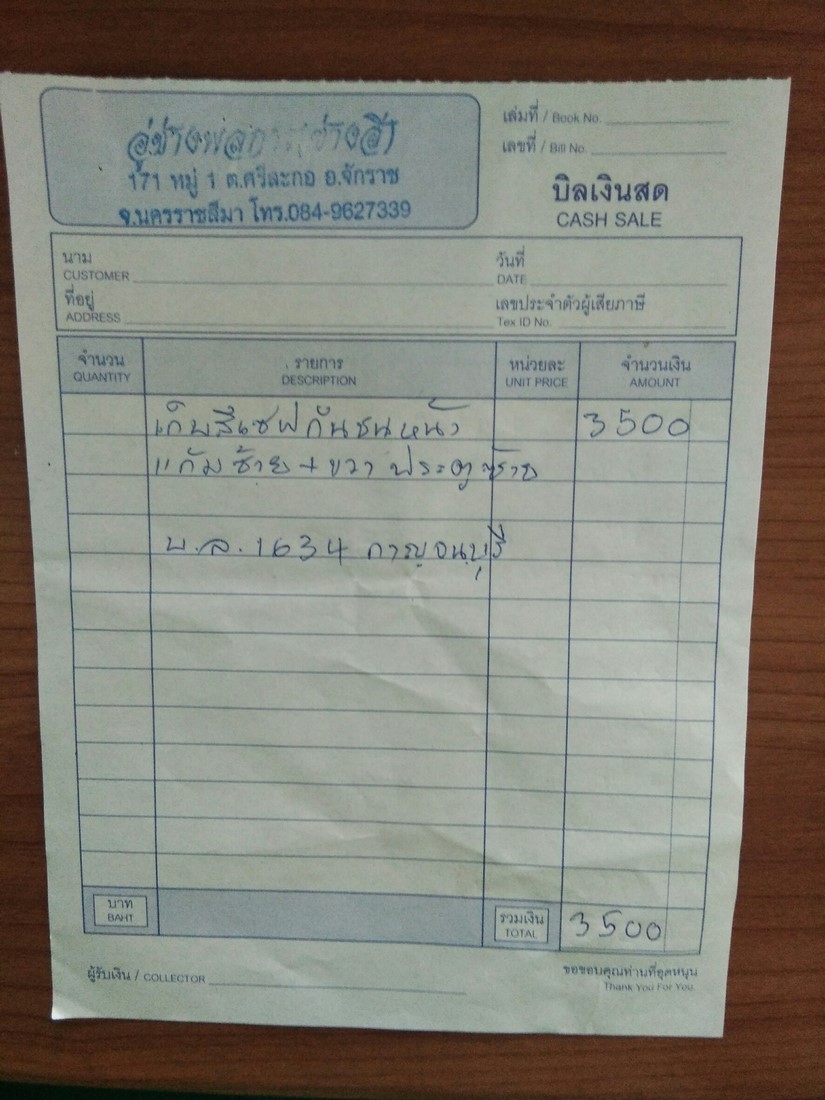 อู่ช่างพล
171 หมู่ 1 ต.ศรีละกอ อ.จักราช
จ.นครราชสีมา โทร.084-9627339
เล่มที่ / Book No.
เลขที่ / Bill No.
บิลเงินสด
CASH SALE
นาม
CUSTOMER
วันที่
DATE
ที่อยู่
ADDRESS
เลขประจำตัวผู้เสียภาษี
Tex ID No.
จำนวน รายการ หน่วยละ จำนวนเงิน
QUANTITY DESCRIPTION UNIT PRICE AMOUNT
เก็บสีเซฟกันชนหน้า 3500
แก้มซ้าย + ขวา ประตูซ้าย
บ.ล. 1634 กาญจนบุรี
บาท
BAHT
รวมเงิน
TOTAL
3500
ผู้รับเงิน / COLLECTOR
ขอขอบคุณท่านที่อุดหนุน
Thank You For You.